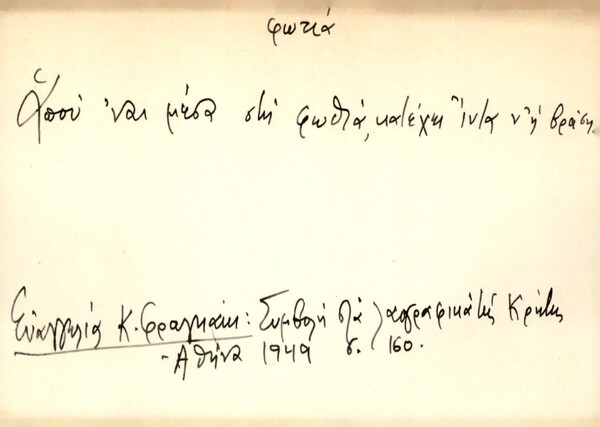 φωτιά
Ἁποὺ 'ναι μέσα στὴ φωθιά, κατέχει ἵντα ν' ἡ βράση.
Εὐαγγελία Κ. Φραγκάκι: Συμβολὴ στὰ λαογραφικὰ τῆς Κρήτης
- Ἀθήνα 1949 σ. 160.